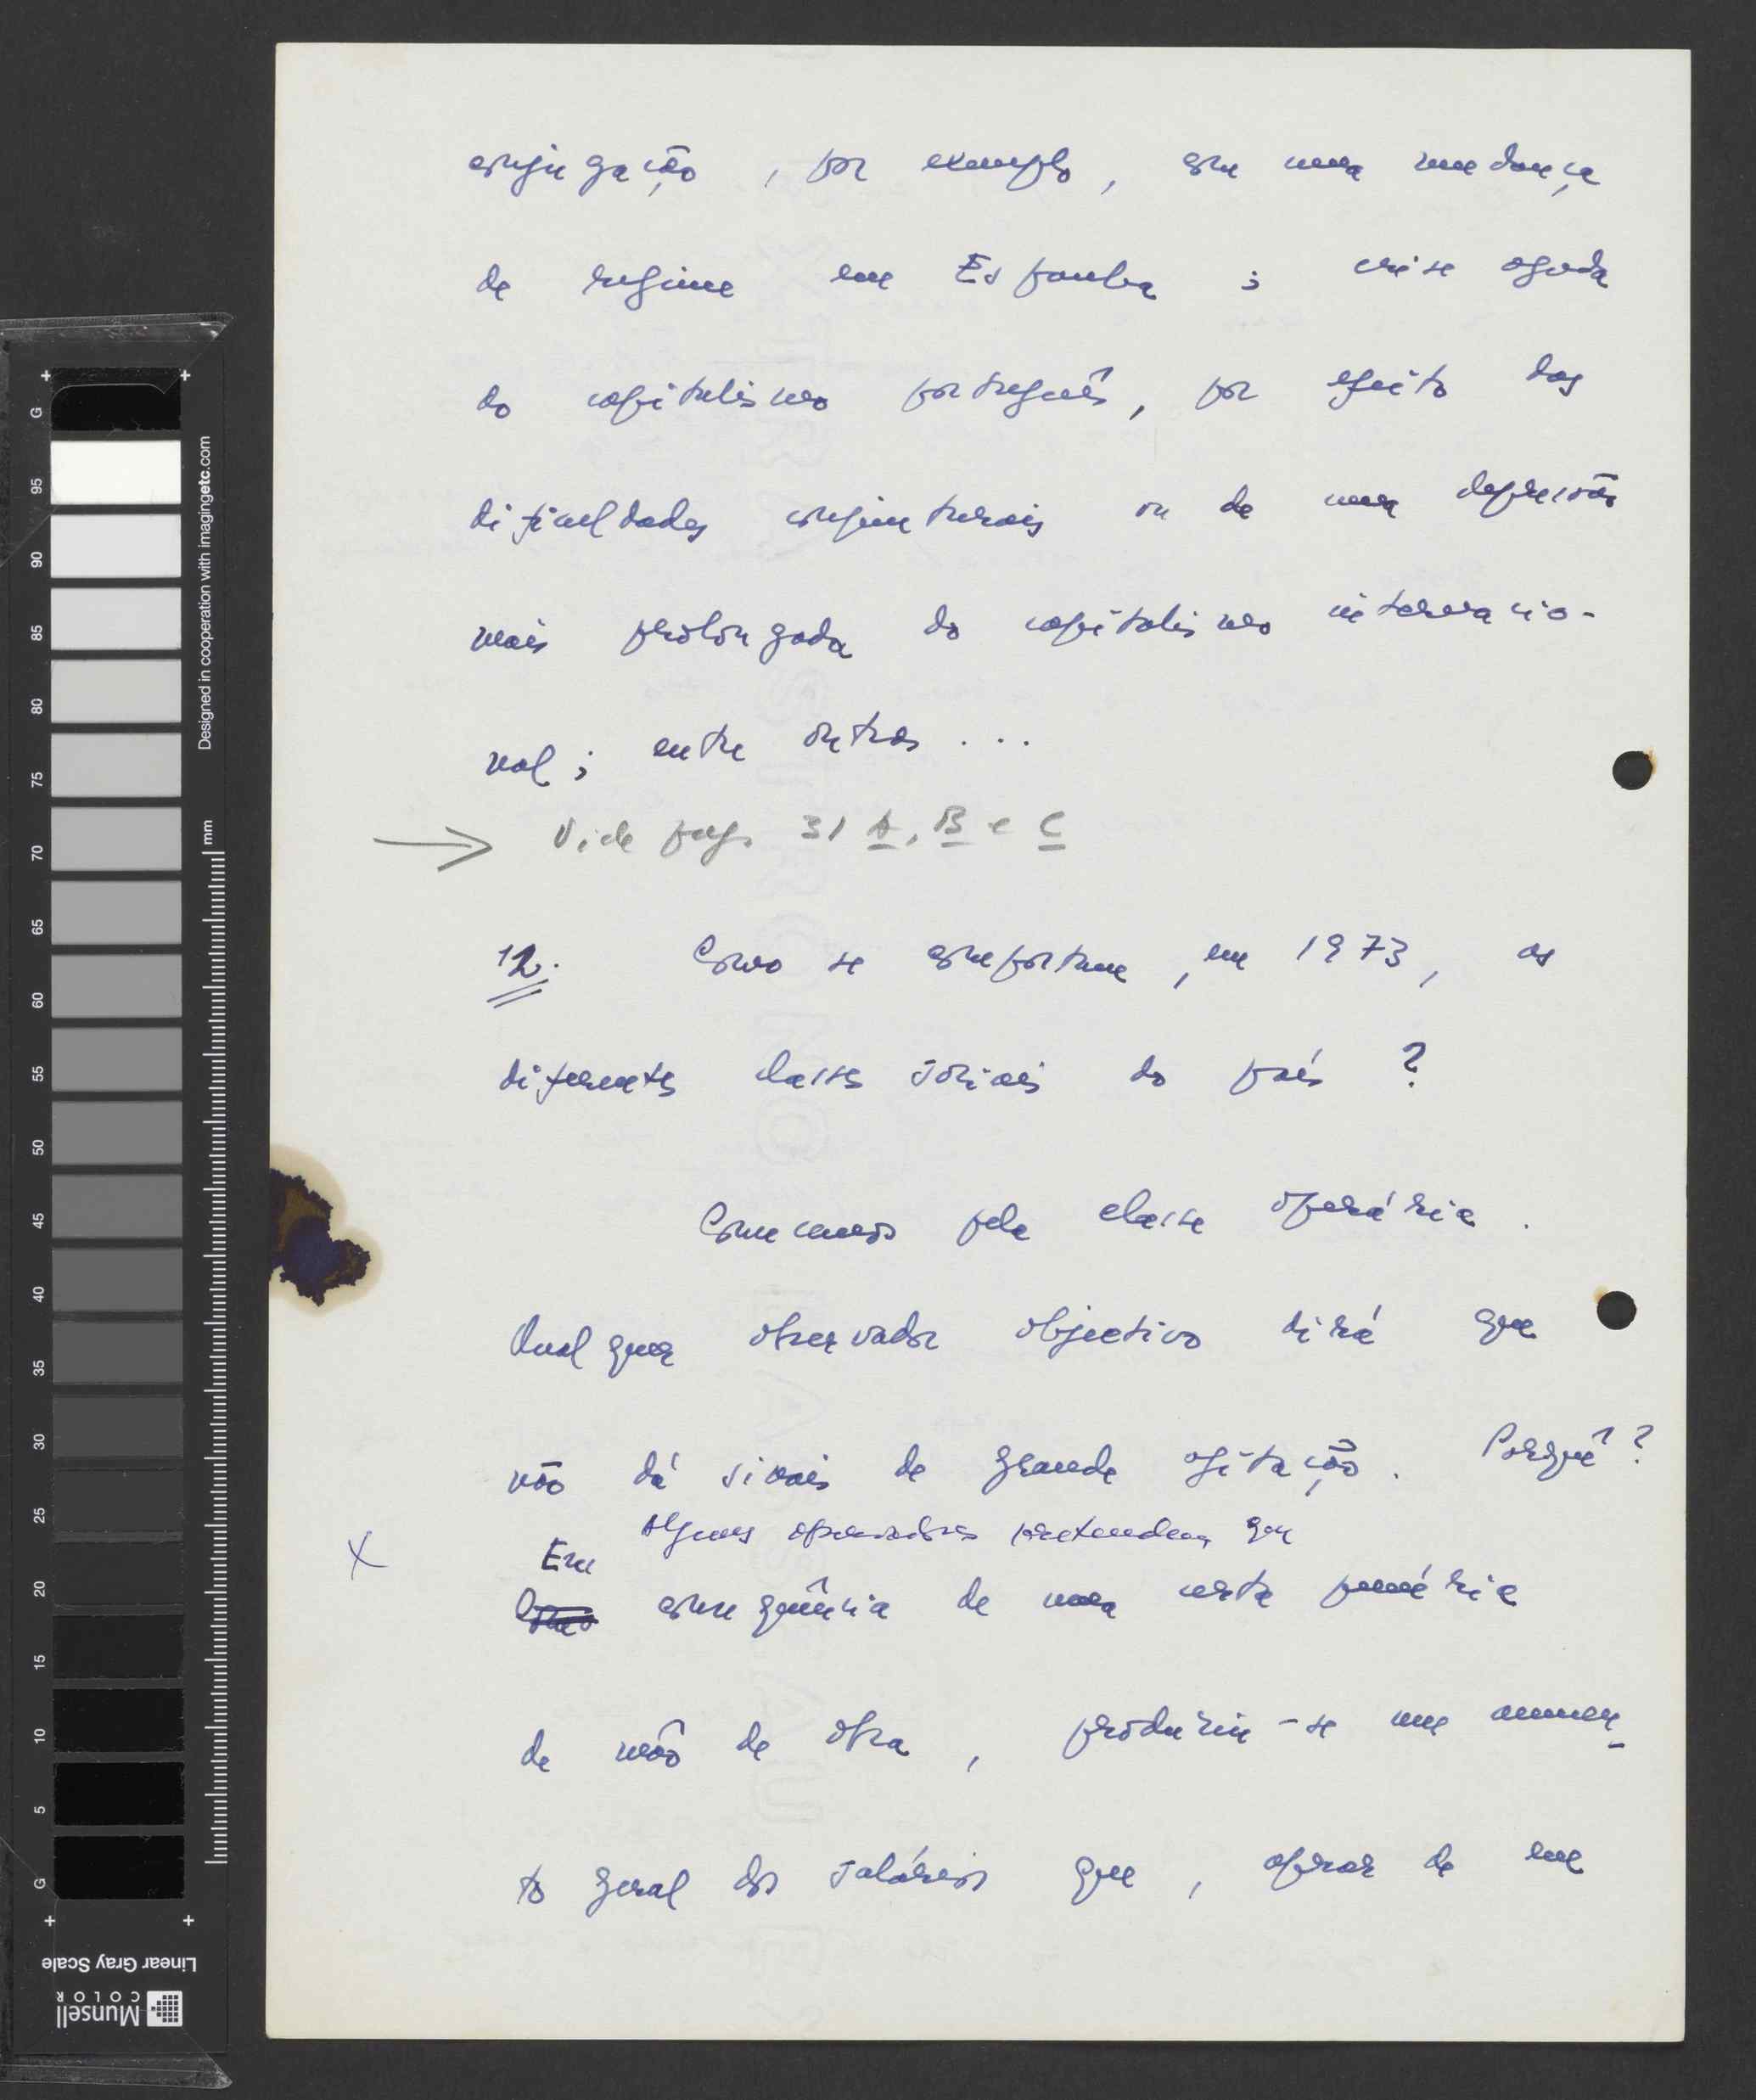 conjugação, por exemplo, com uma mudança
de regime em Espanha; crise aguda
do capitalismo português, por efeito das
dificuldades conjunturais ou de uma depressão
mais prolongada do capitalismo internacio-
nal; entre outras...
→ Vide pags. 31 A, B e C
12. Como se comportam, em 1973, as
diferentes classes sociais do país?
Comecemos pela classe operária.
Qualquer observador objectivo dirá que
não dá sinais de grande agitação. Porquê?
X Alguns observadores pretendem que
Em
Como consequência de uma certa penúria
de mão de obra, produziu-se um aumen-
to geral dos salários que, apesar de em
G
95
90
85
80
75
70
65
60
55
50
45
40
35
30
25
20
15
10
5
G
mm
Designed in cooperation with imagingetc.com
Linear Gray Scale
Munsell
COLOR